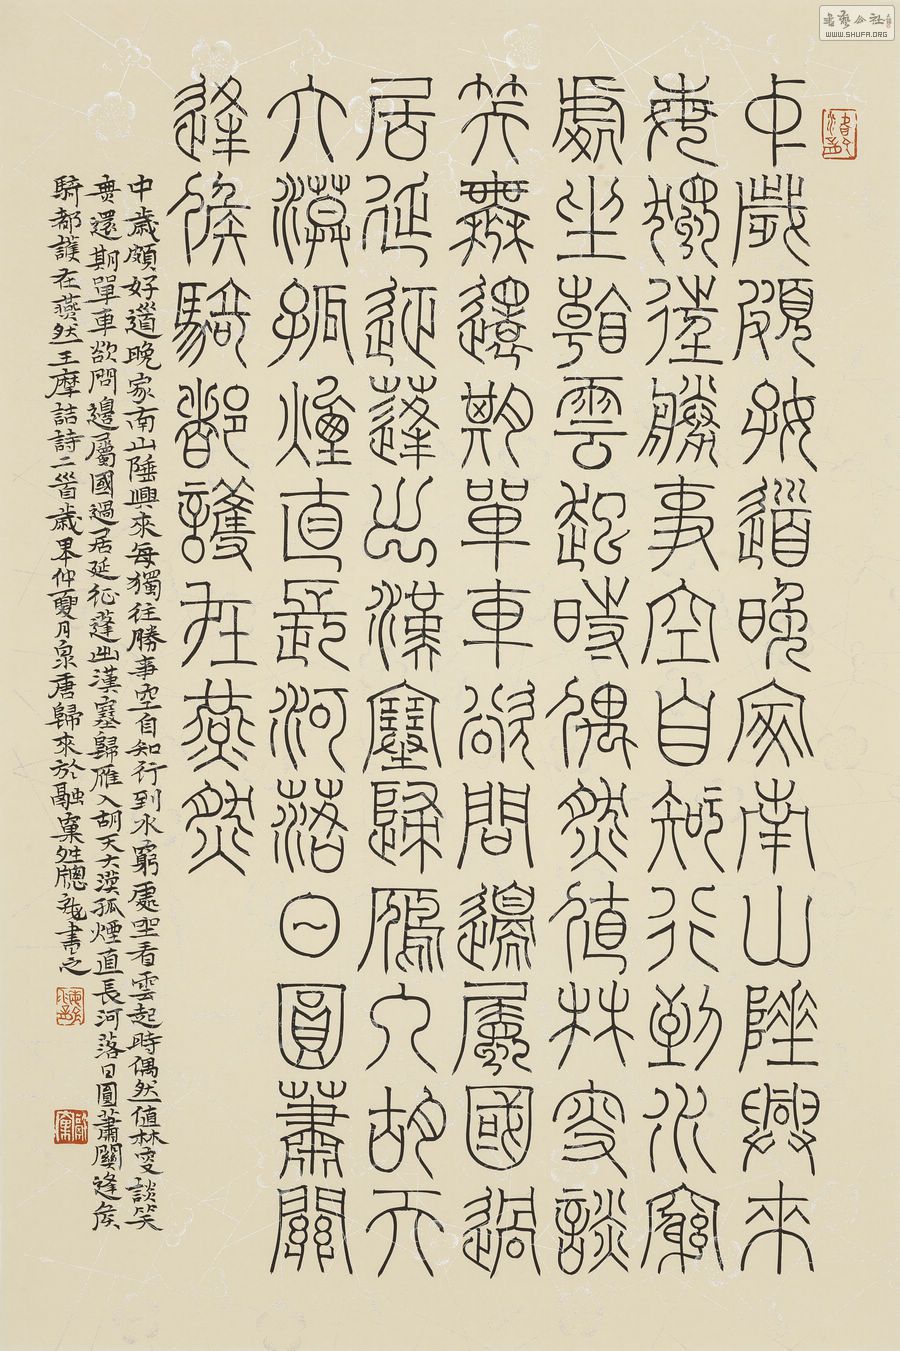 中歲頗好道晚家南山陲興來
每獨往勝事空自知行到水窮
處坐看雲起時偶然值林叟談
笑無還期單車欲問邊屬國過
居延征蓬出漢塞歸雁入胡天
大漠孤煙直長河落日圓蕭關
逢候騎都護在燕然
中歲頗好道晚家南山陲興來每獨往勝事空自知行到水窮處坐看雲起時偶然值林叟談笑
無還期單車欲問邊屬國過居延征蓬出漢塞歸雁入胡天大漠孤煙直長河落日圓蕭關逢候
騎都護在燕然王摩詰詩二首歲仲夏月泉唐歸來於融窠牕書之
書藝公社
WWW.SHUFA.ORG